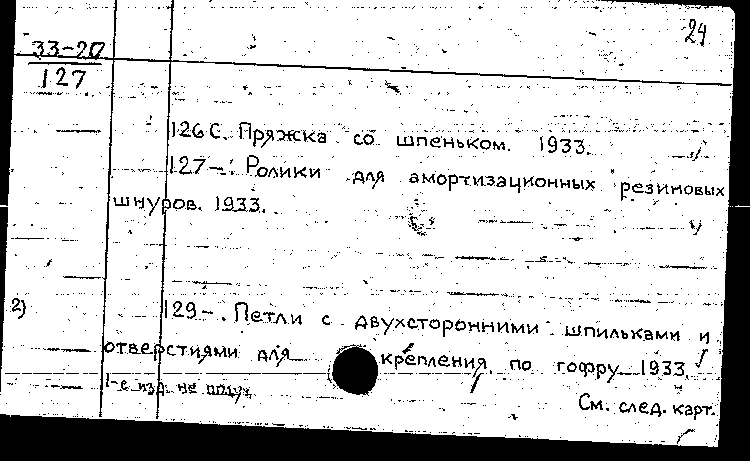 24
33-20
127
126С. Пряжка со шпеньком. 1933.
127-. Ролики для амортизационных резиновых
шнуров. 1933.
2) 129-. Петли с двухсторонними шпильками и
отверстиями для крепления по гофру 1933.
1-е изд. не получ.
См. след. карт.